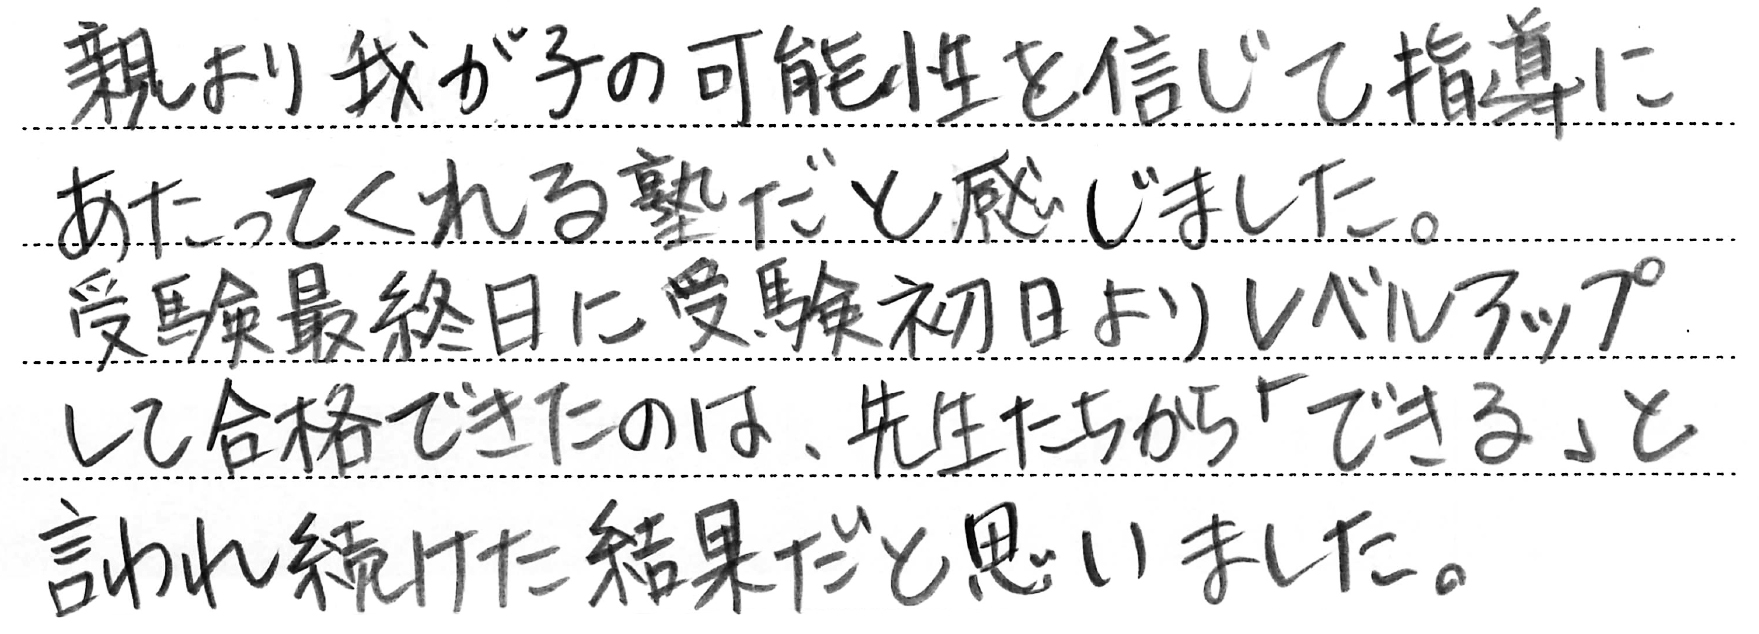 親より我が子の可能性を信じて指導に
あたってくれる塾だと感じました。
受験最終日に受験初日よりレベルアップ
して合格できたのは、先生たちから「できる」と
言われ続けた結果だと思いました。